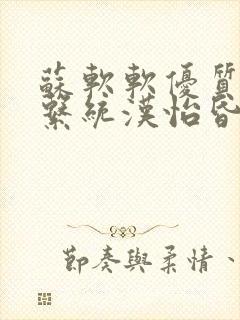 蘇軟軟優質
繫統漢怡昏
節奏與柔情、